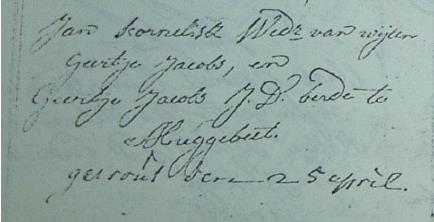 Jan Kornelisz Wedr van wijlen
Geertje Jacobs, en
Geertje Jacobs J.D. beide te
Muggebeet.
getrout den 25 april.